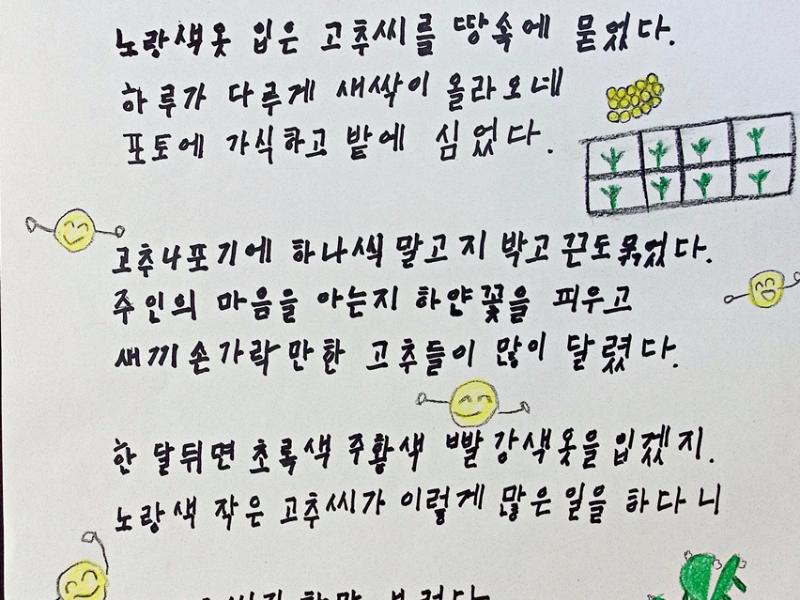 노랑색옷 입은 고추씨를 땅속에 묻었다.
하루가 다루게 새싹이 올라오네
포토에 가식하고 밭에 심었다.
고추나포기에 하나씩 말고 지 박고 끈도 묶었다.
주인의 마음을 아는지 하얀꽃을 피우고
새끼손가락만한 고추들이 많이 달렸다.
한 달뒤면 초록색 주황색 빨강색옷을 입겠지.
노랑색 작은 고추씨가 이렇게 많은 일을 하다니